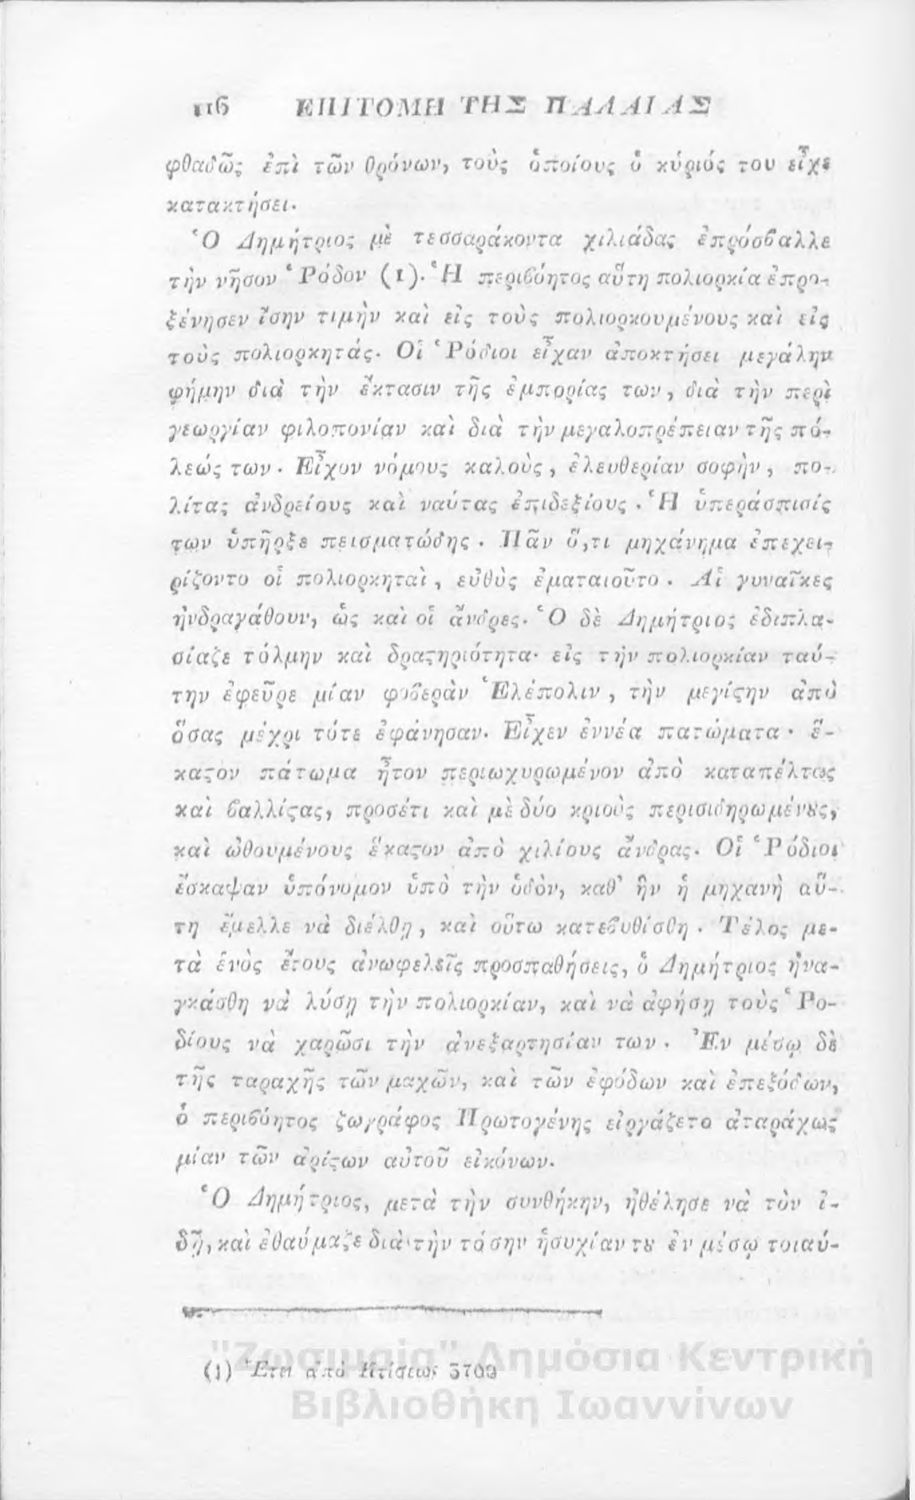 116 ΕΠΙΤΟΜΗ ΤΗΣ ΠΑΛΑΙΑΣ
φθαδῶς ἐπὶ τῶν θρόνων, τοὺς ὁποίους ὁ κύριός του εἶχε
κατακτήσει.
Ὁ Δημήτριος μὲ τεσσαράκοντα χιλιάδας ἐπρόσβαλλε
τὴν νῆσον Ῥόδον (1). Ἡ περιβόητος αὕτη πολιορκία ἐπρο-
ξένησεν ἴσην τιμὴν καὶ εἰς τοὺς πολιορκουμένους καὶ εἰς
τοὺς πολιορκητάς. Οἱ Ῥόδιοι εἶχαν ἀποκτήσει μεγάλην
φήμην διὰ τὴν ἔκτασιν τῆς ἐμπορίας των, διὰ τὴν περὶ
γεωργίαν φιλοπονίαν καὶ διὰ τὴν μεγαλοπρέπειαν τῆς πό-
λεώς των. Εἶχον νόμους καλοὺς, ἐλευθερίαν σοφὴν, πο-
λίτας ἀνδρείους καὶ ναύτας ἐπιδεξίους. Ἡ ὑπεράσπισίς
των ὑπῆρξε πεισματώδης. Πᾶν ὅ,τι μηχάνημα ἐπεχει-
ρίζοντο οἱ πολιορκηταὶ, εὐθὺς ἐματαιοῦτο. Αἱ γυναῖκες
ἠνδραγάθουν, ὡς καὶ οἱ ἄνδρες. Ὁ δὲ Δημήτριος ἐδιπλα-
σίαζε τόλμην καὶ δραϛηριότητα· εἰς τὴν πολιορκίαν ταύ-
την ἐφεῦρε μίαν φοβερὰν Ἑλέπολιν, τὴν μεγίϛην ἀπὸ
ὅσας μέχρι τότε ἐφάνησαν. Εἶχεν ἐννέα πατώματα· ἕ-
καϛον πάτωμα ἦτον περιωχυρωμένον ἀπὸ καταπέλτας
καὶ βαλλίϛας, προσέτι καὶ μὲ δύο κριοὺς περισιδηρωμένȣς,
καὶ ὠθουμένους ἕκαϛον ἀπὸ χιλίους ἄνδρας. Οἱ Ῥόδιοι
ἔσκαψαν ὑπόνομον ὑπὸ τὴν ὁδὸν, καθ' ἣν ἡ μηχανὴ αὕ-
τη ἔμελλε νὰ διέλθῃ, καὶ οὕτω κατεβυθίσθη. Τέλος με-
τὰ ἑνὸς ἔτους ἀνωφελεῖς προσπαθήσεις, ὁ Δημήτριος ἠνα-
γκάσθη νὰ λύσῃ τὴν πολιορκίαν, καὶ νὰ ἀφήσῃ τοὺς Ῥο-
δίους νὰ χαρῶσι τὴν ἀνεξαρτησίαν των. Ἐν μέσῳ δὲ
τῆς ταραχῆς τῶν μαχῶν, καὶ τῶν ἐφόδων καὶ ἐπεξόδων,
ὁ περιβόητος ζωγράφος Πρωτογένης εἰργάζετο ἀταράχως
μίαν τῶν ἀρίϛων αὐτοῦ εἰκόνων.
Ὁ Δημήτριος, μετὰ τὴν συνθήκην, ἠθέλησε νὰ τὸν ἰ-
δῇ, καὶ ἐθαύμαζε διὰ τὴν τόσην ἡσυχίαν τȣ ἐν μέσῳ τοιαύ-
(1) Ἔτει ἀπὸ Κτίσεως 3700
"Ζωσιμαία" Δημόσια Κεντρική
Βιβλιοθήκη Ιωαννίνων